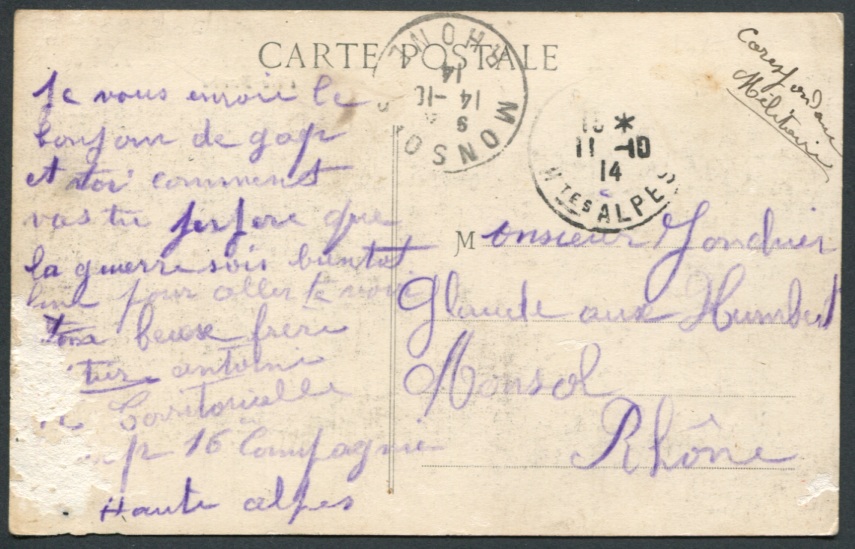 CARTE POSTALE
Corespondance
Militaire
RHONE
14
14-10
9
MONSOLS
11-10
14
HTES ALPES
je vous envoie le
bonjour de gap
et toi comment
vas tu jespere que
la guerre sois bientot
fini pour aller te voir
ton beux frere
antoine
Territorialle
gap 16 Compagnie
Haute alpes
Monsieur
Glaude aux Humbert
Monsol
Rhône